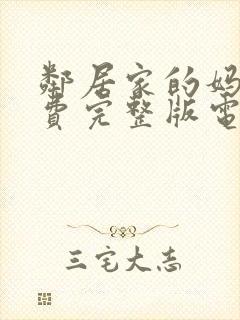 鄰居家的妈
費完整版電
三宅大志